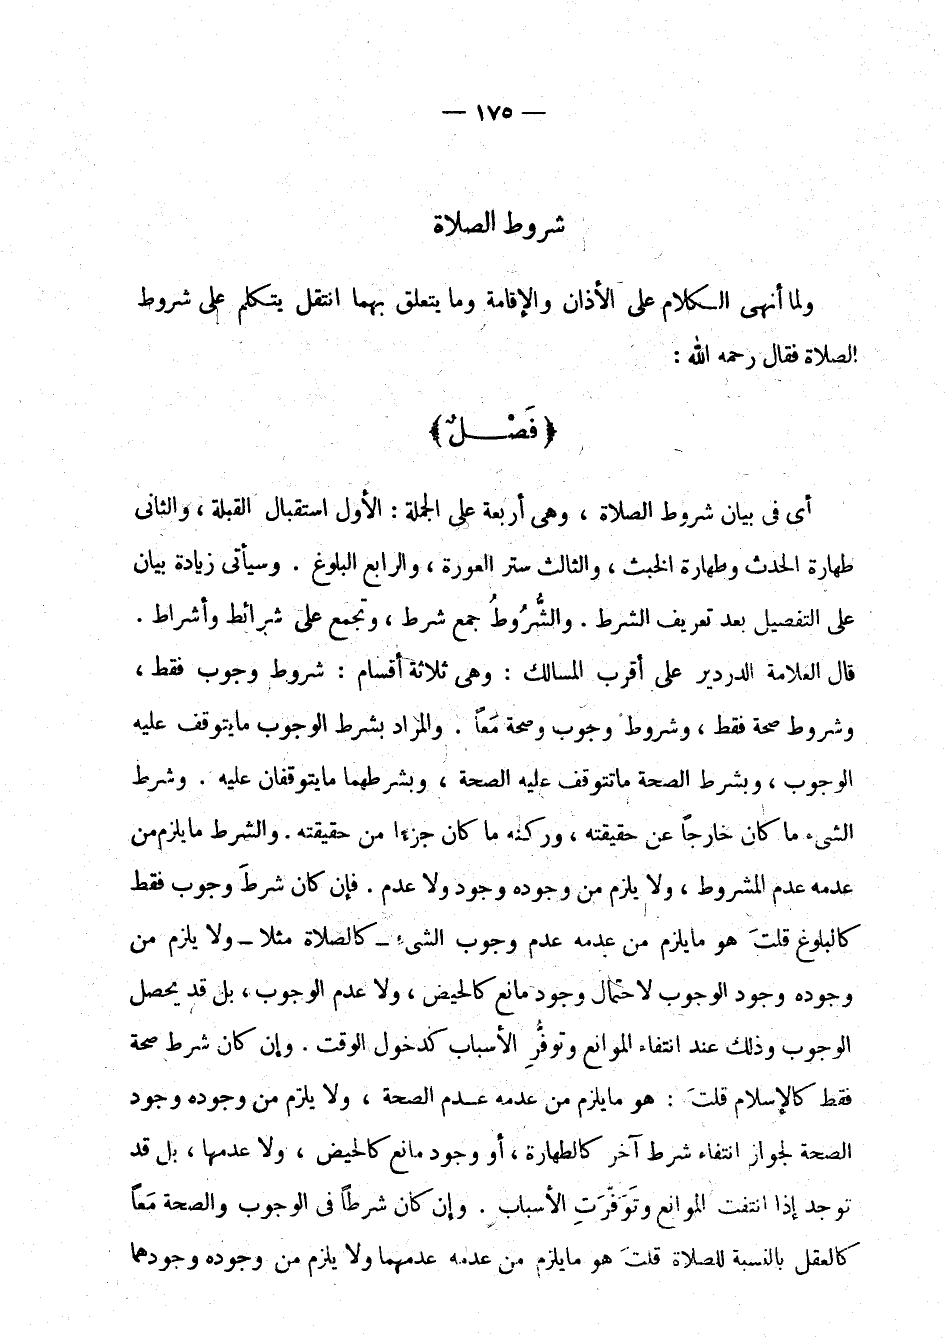 — ١٧٥ —
شروط الصلاة
ولما أنهى الكلام على الأذان والإقامة وما يتعلق بهما انتقل يتكلم على شروط
الصلاة فقال رحمه الله :
﴿ فَصْــلٌ ﴾
أى فى بيان شروط الصلاة ، وهى أربعة على الجملة : الأول استقبال القبلة ، والثانى
طهارة الحدث وطهارة الخبث ، والثالث ستر العورة ، والرابع البلوغ . وسيأتى زيادة بيان
على التفصيل بعد تعريف الشرط . والشُّرُوطُ جمع شرط ، وتجمع على شرائط وأشراط .
قال العلامة الدردير على أقرب المسالك : وهى ثلاثة أقسام : شروط وجوب فقط ،
وشروط صحة فقط ، وشروط وجوب وصحة مَعاً . والمراد بشرط الوجوب مايتوقف عليه
الوجوب ، وبشرط الصحة ماتتوقف عليه الصحة ، وبشرطهما مايتوقفان عليه . وشرط
الشىء ما كان خارجاً عن حقيقته ، وركنه ما كان جزءا من حقيقته . والشرط مايلزم من
عدمه عدم المشروط ، ولا يلزم من وجوده وجود ولا عدم . فإن كان شرطَ وجوب فقط
كالبلوغ قلتَ هو مايلزم من عدمه عدم وجوب الشىءِ ــ كالصلاة مثلا ــ ولا يلزم من
وجوده وجود الوجوب لاحتمال وجود مانع كالحيض ، ولا عدم الوجوب ، بل قد يحصل
الوجوب وذلك عند انتفاء الموانع وتوفُّرِ الأسباب كدخول الوقت . وإن كان شرط صحة
فقط كالإسلام قلتَ : هو مايلزم من عدمه عـدم الصحة ، ولا يلزم من وجوده وجود
الصحة لجواز انتفاء شرط آخر كالطهارة ، أو وجود مانع كالحيض ، ولا عدمها ، بل قد
توجد إذا انتفت الموانع وتَوَفَّرَتِ الأسباب . وإن كان شرطاً فى الوجوب والصحة مَعاً
كالعقل بالنسبة للصلاة قلتَ هو مايلزم من عدمه عدمهما ولا يلزم من وجوده وجودهما